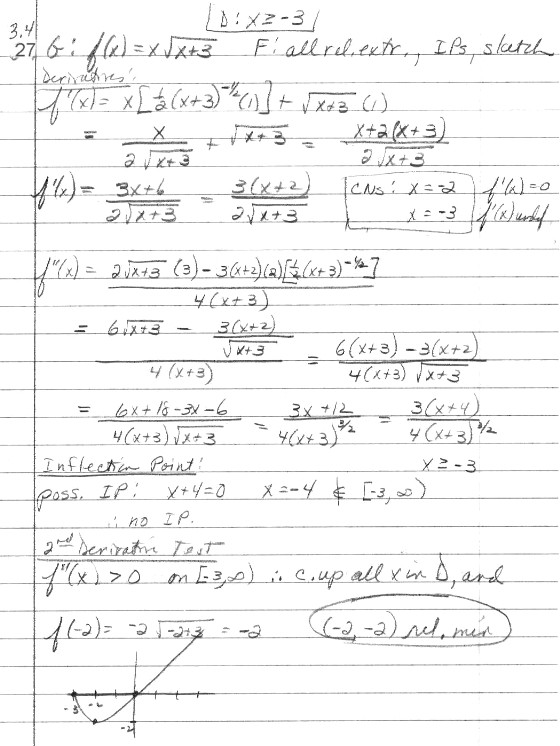 D: x ≥ -3
3.4
27, G: f(x) = x√(x+3) F: all rel. extr., IPs, sketch
Derivatives:
f'(x) = x[½(x+3)^(-½)(1)] + √(x+3) (1)
= x/(2√(x+3)) + √(x+3) = (x+2(x+3))/(2√(x+3))
f'(x) = (3x+6)/(2√(x+3)) = 3(x+2)/(2√(x+3)) CNs: x = -2 f'(x)=0
x = -3 f'(x) undf
f''(x) = (2√(x+3) (3) - 3(x+2)(2)[½(x+3)^(-½)])/(4(x+3))
= (6√(x+3) - 3(x+2)/√(x+3))/(4(x+3)) = (6(x+3) - 3(x+2))/(4(x+3)√(x+3))
= (6x+18-3x-6)/(4(x+3)√(x+3)) = (3x+12)/(4(x+3)^(3/2)) = 3(x+4)/(4(x+3)^(3/2))
Inflection Point: x ≥ -3
poss. IP: x+4=0 x=-4 ∉ [-3,∞)
∴ no IP.
2nd Derivative Test
f''(x) > 0 on [-3,∞) ∴ c. up all x in D, and
f(-2) = -2√(-2+3) = -2 (-2,-2) rel. min
-3 -2
-2